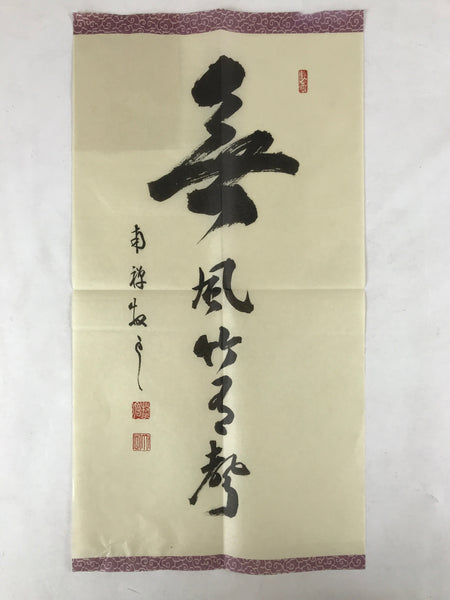 無風竹有聲
南禅牧